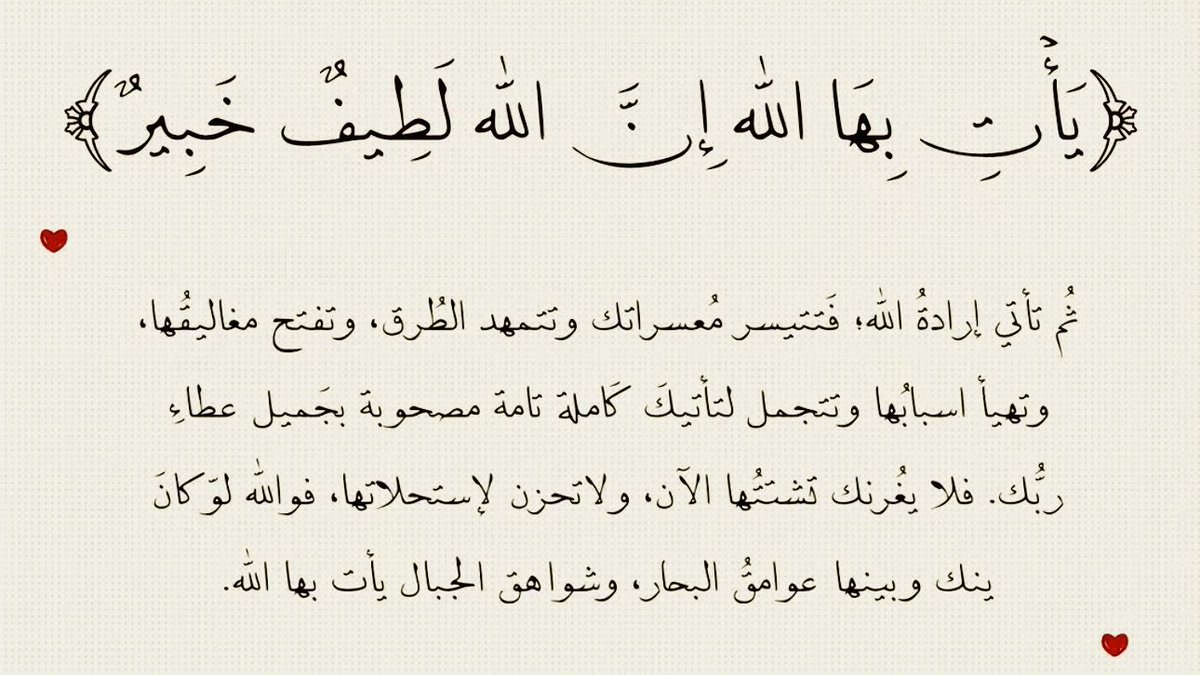 ﴿يَأْتِ بِهَا اللَّه إِنَّ اللَّه لَطِيفٌ خَبِيرٌ﴾
ثُم تأتي إرادةُ الله؛ فَتتيسر مُعسراتك وتتمهد الطُرق، وتفتح مغاليقُها،
وتهيأ اسبابُها وتتجمل لتأتيكَ كَاملة تامة مصحوبة بجَميل عطاءِ
ربُّك. فلا يغُرنك تشتتُها الآن، ولاتحزن لإستحلاتها، فوالله لوّ كانَ
ينك وبينها عوامقُ البحار، وشواهق الجبال يأت بها الله.